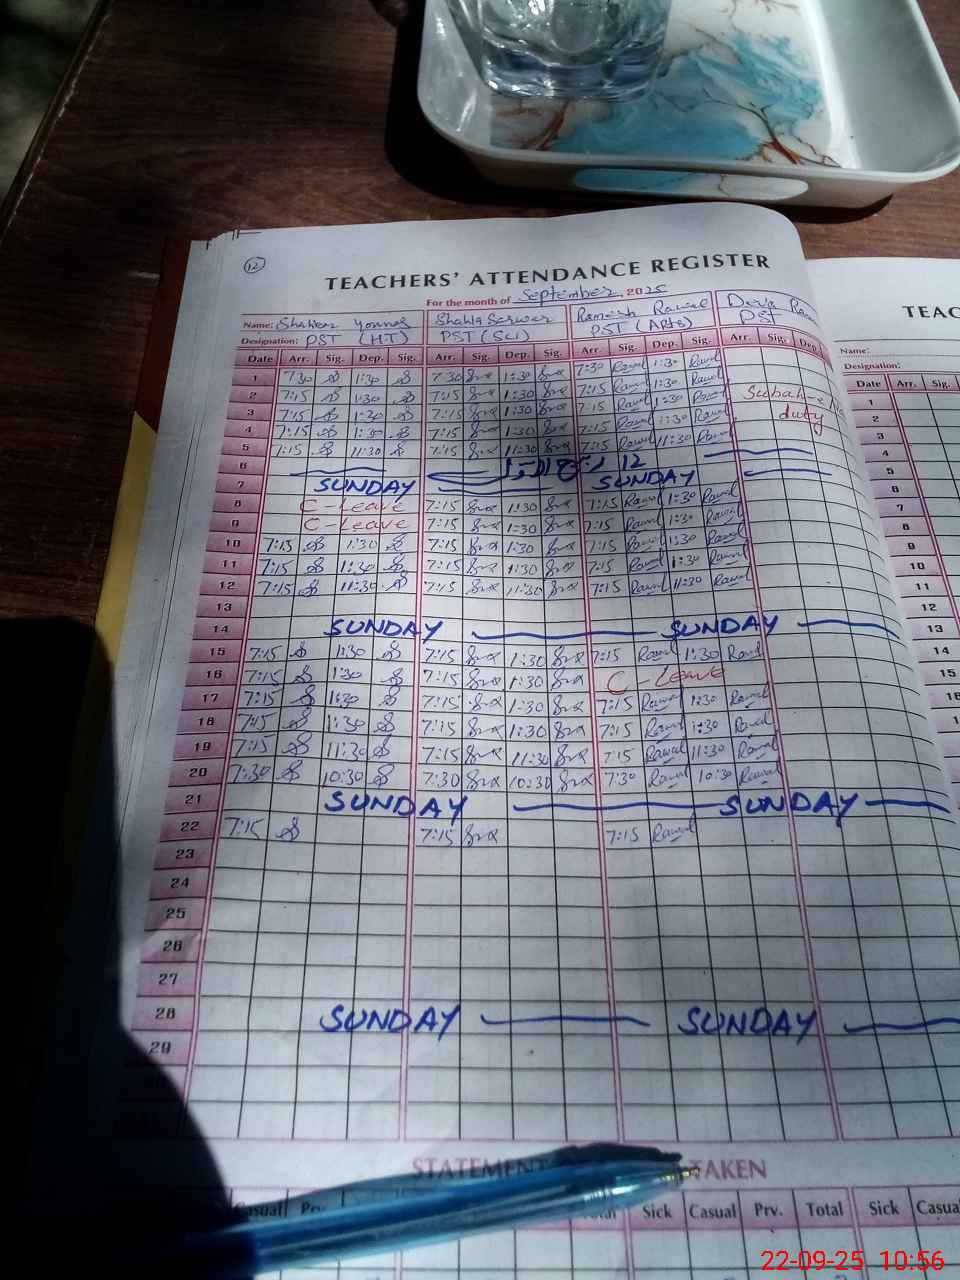 12
TEACHERS' ATTENDANCE REGISTER
For the month of September, 2025
Name: Shaheen Younas Shahla Sarwar Ramesh Rawal Deva
Designation: PST (HT) PST (Sci) PST (Arts) PST
Date Arr. Sig. Dep. Sig. Arr. Sig. Dep. Sig. Arr. Sig. Dep. Sig. Arr. Sig. Dep.
1 7:30 1:30 7:30 1:30 7:30 Rawal 1:30 Rawal
2 7:15 1:30 7:15 1:30 7:15 Rawal 1:30 Rawal
3 7:15 1:30 7:15 1:30 7:15 Rawal 1:30 Rawal duty
4 7:15 1:30 7:15 1:30 7:15 Rawal 1:30 Rawal
5 7:15 11:30 7:15 11:30 7:15 Rawal 11:30 Rawal
6 12
7 SUNDAY SUNDAY
8 C-Leave 7:15 1:30 7:15 Rawal 1:30 Rawal
9 C-Leave 7:15 1:30 7:15 Rawal 1:30 Rawal
10 7:15 1:30 7:15 1:30 7:15 Rawal 1:30 Rawal
11 7:15 11:30 7:15 11:30 7:15 Rawal 11:30 Rawal
12 7:15 11:30 7:15 11:30 7:15 Rawal 11:30 Rawal
13
14 SUNDAY SUNDAY
15 7:15 1:30 7:15 1:30 7:15 Rawal 1:30 Rawal
16 7:15 1:30 7:15 1:30 C-Leave
17 7:15 1:30 7:15 1:30 7:15 Rawal 1:30 Rawal
18 7:15 1:30 7:15 1:30 7:15 Rawal 1:30 Rawal
19 7:15 11:30 7:15 11:30 7:15 Rawal 11:30 Rawal
20 7:30 10:30 7:30 10:30 7:30 Rawal 10:30 Rawal
21 SUNDAY SUNDAY
22 7:15 7:15 7:15 Rawal
23
24
25
26
27
28 SUNDAY SUNDAY
29
STATEMENT TAKEN
Casual Total Sick Casual Prv. Total Sick Casual
TEAC
Name:
Designation:
Date Arr. Sig.
1
2
3
4
5
6
7
8
9
10
11
12
13
14
15
22-09-25 10:56